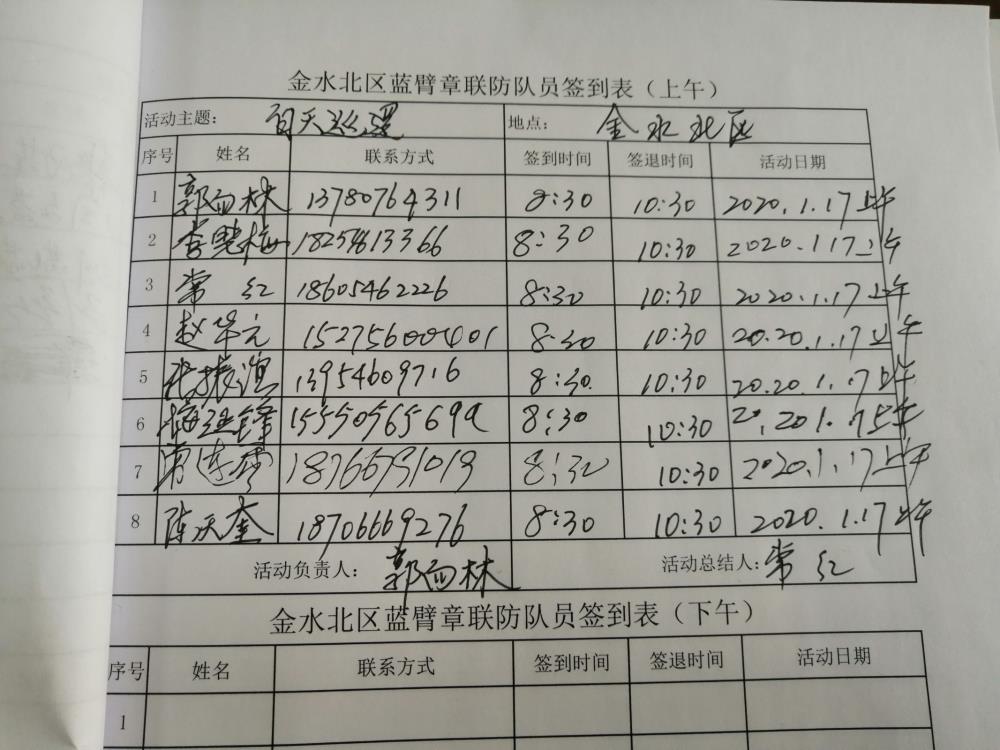 金水北区蓝臂章联防队员签到表（上午）
活动主题： 白天巡逻 地点： 金水北区
序号 姓名 联系方式 签到时间 签退时间 活动日期
1 郭向林 13780764311 8:30 10:30 2020.1.17上午
2 李慧梅 18254613366 8:30 10:30 2020.1.17上午
3 常红 18605462226 8:30 10:30 2020.1.17上午
4 赵华元 8:30 10:30 2020.1.17上午
5 张振谊 13954609716 8:30 10:30 2020.1.17上午
6 8:30 10:30
7 18766791019 8:30 10:30 2020.1.17上午
8 陈庆奎 18706669276 8:30 10:30 2020.1.17上午
活动负责人： 郭向林 活动总结人： 常红
金水北区蓝臂章联防队员签到表（下午）
序号 姓名 联系方式 签到时间 签退时间 活动日期
1